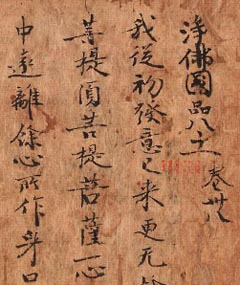 淨佛國品八十二 卷卅八
我從初發意已来更无
菩提圓菩提菩薩一心
中遠離餘心所作身口